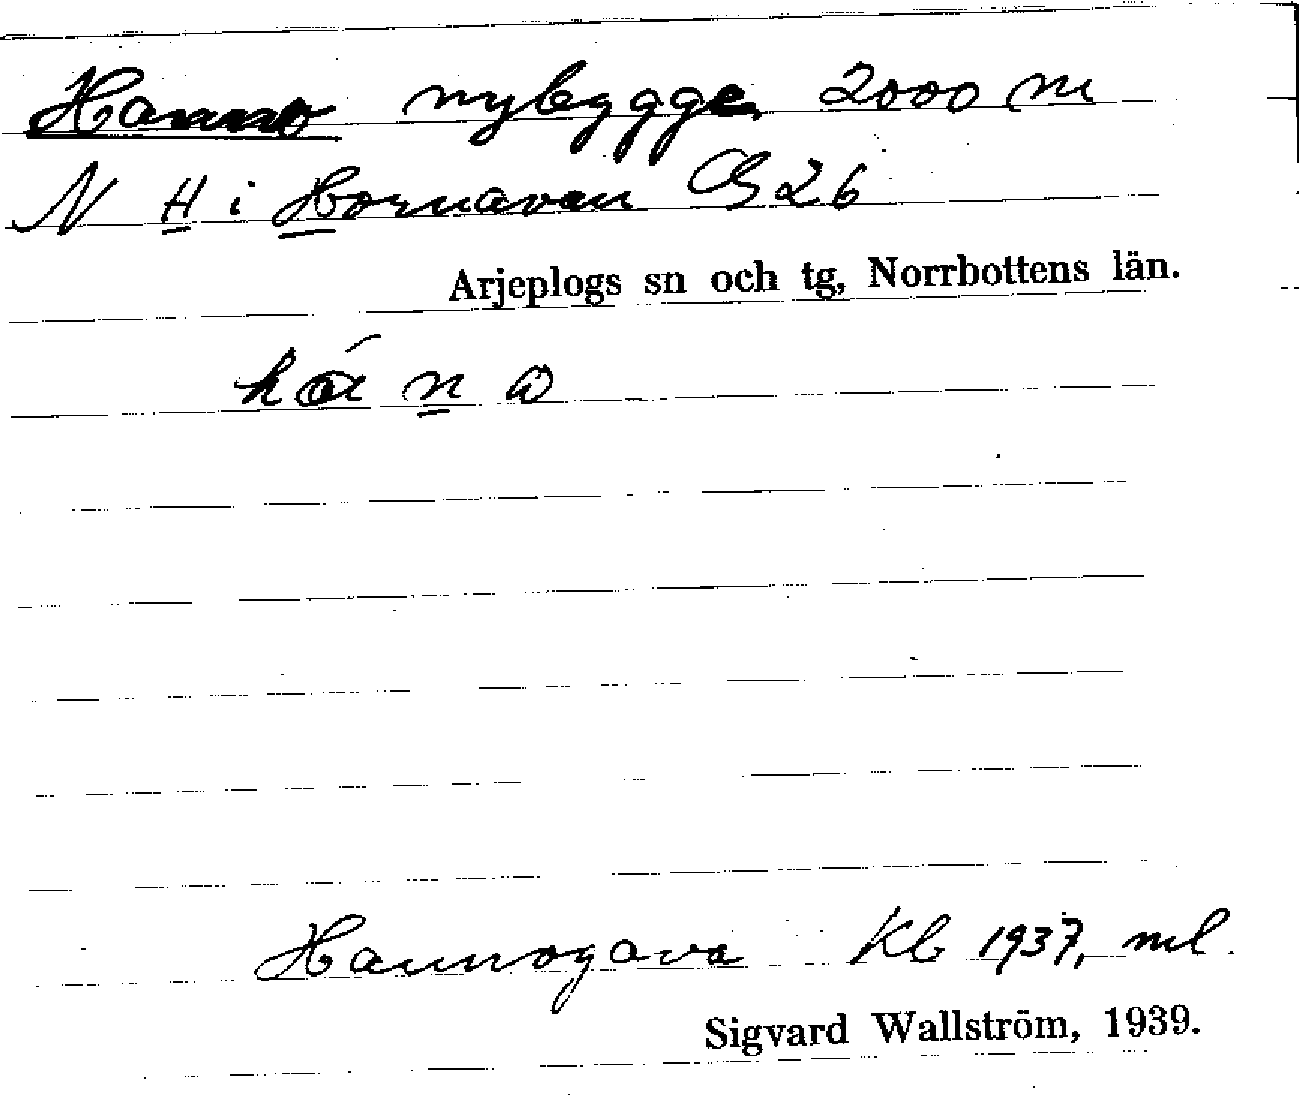 Hanno nybygge, 2000 m
N H i Hornavan B 26
Arjeplogs sn och tg, Norrbottens län.
hán
Hannogava Kb 1937, ml.
Sigvard Wallström, 1939.